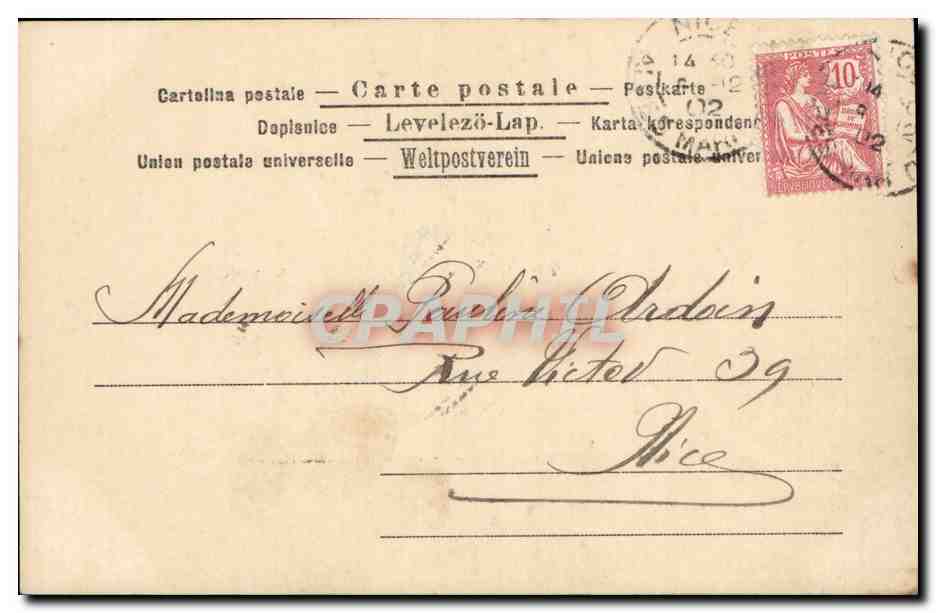 Cartolina postale — Carte postale — Postkarte
Dopisnice — Levelező-Lap. — Karta korespondenc
Union postale universelle — Weltpostverein — Unione postale univer
NICE
14 30
02
POSTES
10
Mademoiselle Pauline Ardoin
CPAPHIL
Rue Victor 39
Nice